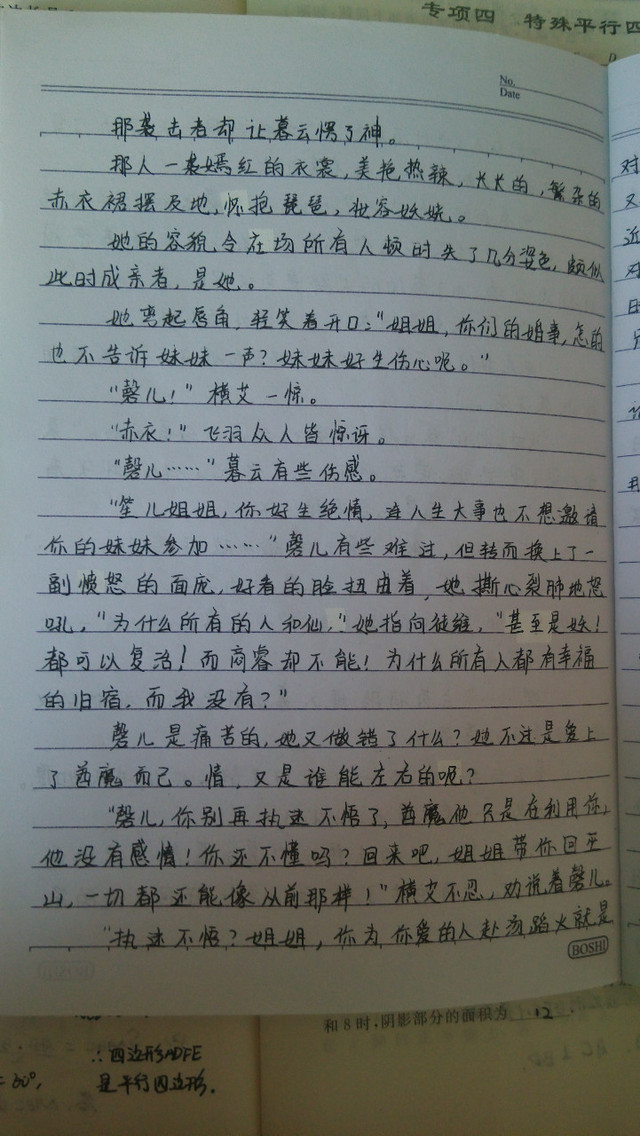 专项四 特殊平行四
No.
Date
那袭击者却让暮云愣了神。
那人一袭嫣红的衣裳,美艳热辣,长长的,繁杂的
赤衣裙摆及地,怀抱琵琶,妆容妖娆。
她的容貌令在场所有人顿时失了几分姿色,颇似
此时成亲者,是她。
她弯起唇角,轻笑着开口:“姐姐,你们的婚事,怎的
也不告诉妹妹一声?妹妹好生伤心呢。”
“磬儿!”横艾一惊。
“赤衣!”飞羽众人皆惊讶。
“磬儿……”暮云有些伤感。
“笙儿姐姐,你好生绝情,连人生大事也不想邀请
你的妹妹参加……”磬儿有些难过,但转而换上了一
副愤怒的面庞,好看的脸扭曲着,她撕心裂肺地怒
吼,“为什么所有的人和仙,”她指向徒维,“甚至是妖!
都可以复活!而商睿却不能!为什么所有人都有幸福
的归宿,而我没有?”
磬儿是痛苦的,她又做错了什么?她不过是爱上
了酋魔而已。情,又是谁能左右的呢?
“磬儿,你别再执迷不悟了,酋魔他只是在利用你,
他没有感情!你还不懂吗?回来吧,姐姐带你回巫
山,一切都还能像从前那样!”横艾不忍,劝说着磬儿。
“执迷不悟?姐姐,你为你爱的人赴汤蹈火就是
BOSHI
对
又
近
和8时,阴影部分的面积为 12 .
∴四边形ADFE
是平行四边形.